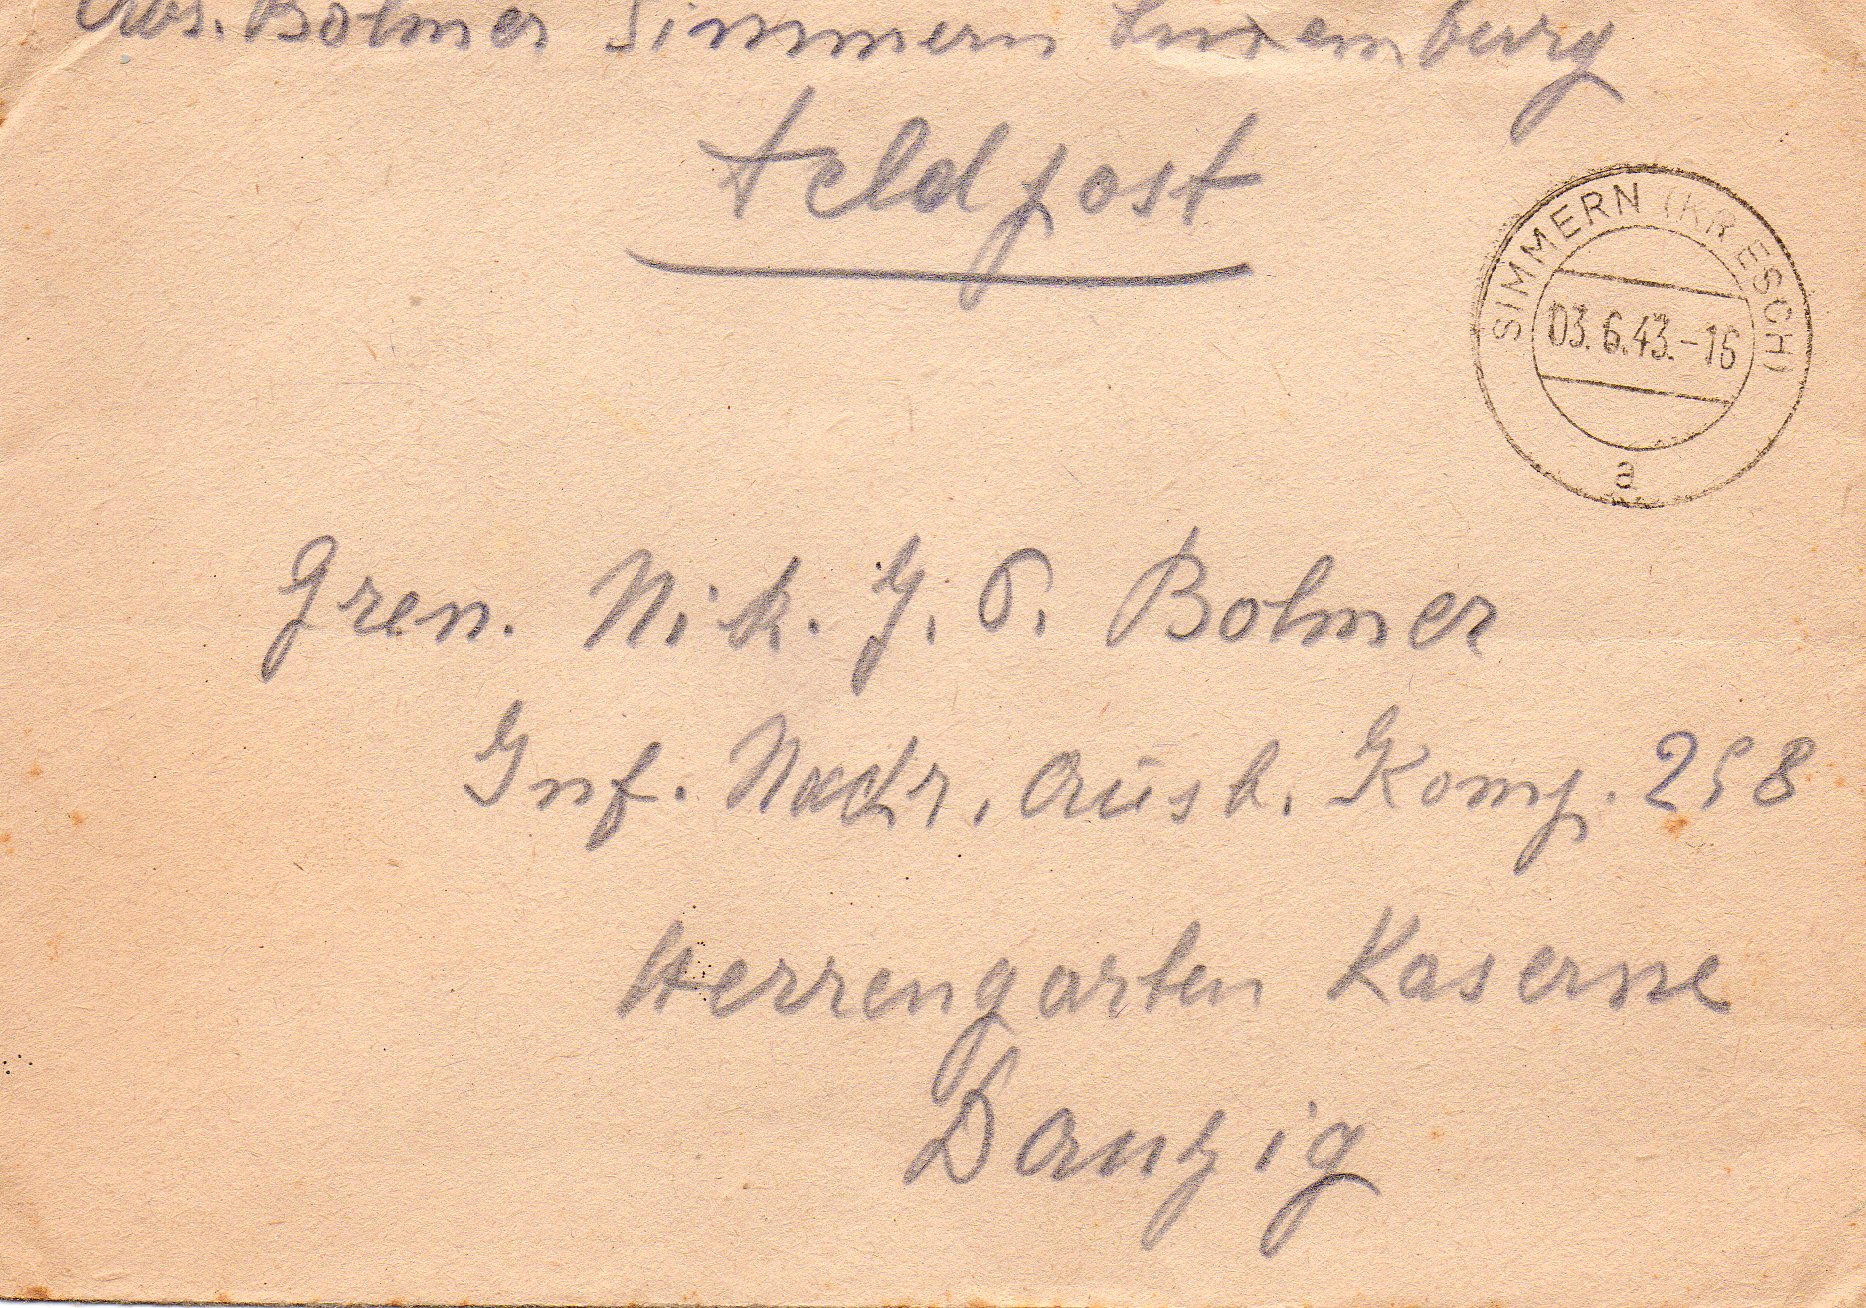 Abs. Bolmer Simmern Luxemburg
Feldpost
SIMMERN (KR ESCH)
03.6.43.-16
a
Gren. Nik. J. P. Bolmer
Inf. Nachr. Ausb. Komp. 258
Herrengarten Kaserne
Danzig